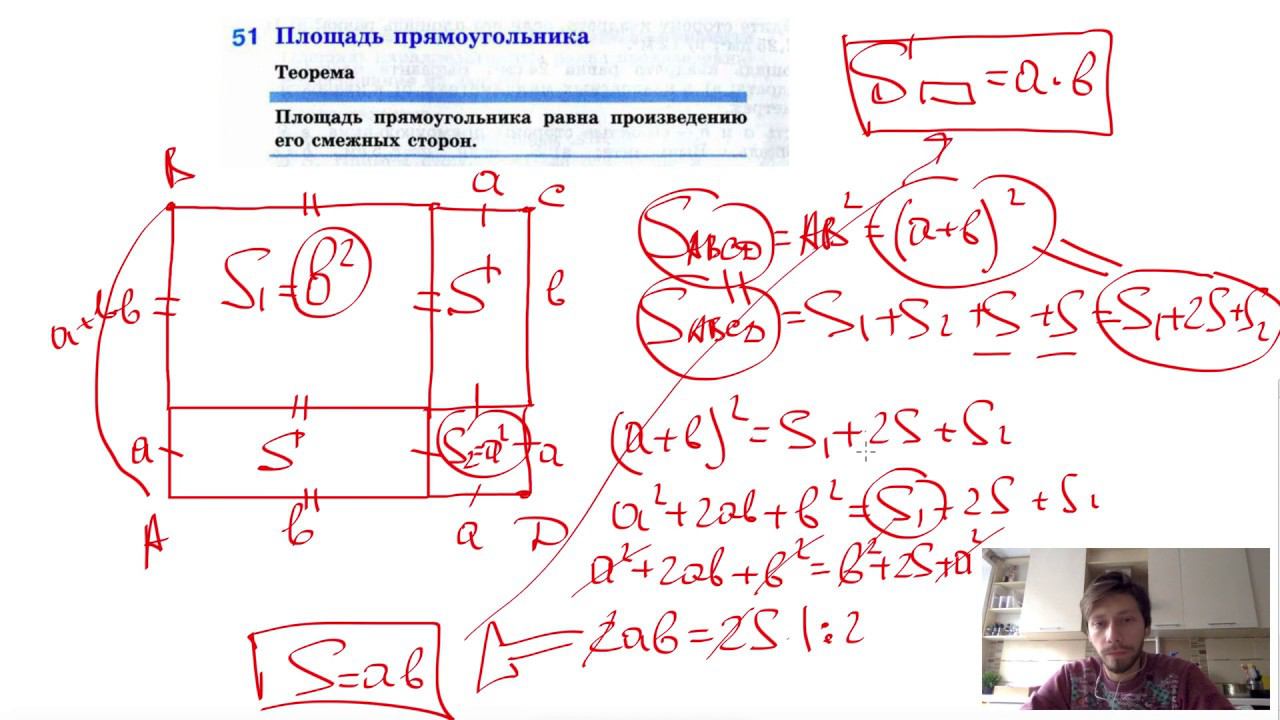 51 Площадь прямоугольника
Теорема
Площадь прямоугольника равна произведению
его смежных сторон.
S▭ = a·b
B a C
S₁=b² S b
a+b
a S S₂=a² a
A b a D
S_ABCD = AB² = (a+b)²
S_ABCD = S₁+S₂+S+S = S₁+2S+S₂
(a+b)² = S₁+2S+S₂
a²+2ab+b² = S₁+2S+S₂
a²+2ab+b² = b²+2S+a²
2ab=2S |:2
S=ab